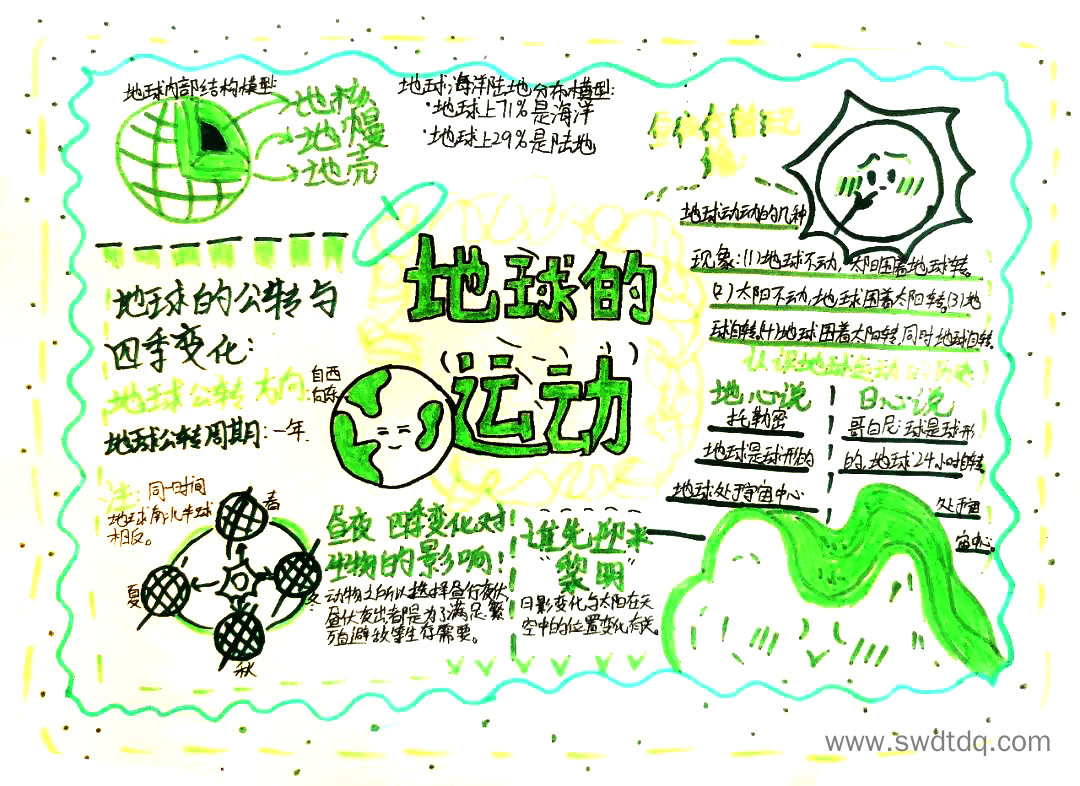 地球内部结构模型:
地核
地慢
地壳
地球海洋陆地分布模型:
·地球上71%是海洋
·地球上29%是陆地
地球运动的几种
现象:(1)地球不动,太阳围着地球转。
(2)太阳不动,地球围着太阳转。(3)地
球自转。(4)地球围着太阳转,同时地球自转。
地球的
运动
地球的公转与
四季变化:
地球公转方向:
自西
向东
地球公转周期:一年.
注:同一时间
地球南北半球
相反。
春
夏
冬
秋
认识地球运动的历史
地心说
托勒密
地球是球形的
地球处于宇宙中心
日心说
哥白尼:球是球形
的,地球24小时自转
处于宇
宙中心。
昼夜 四季变化对
生物的影响!
动物之所以选择昼行夜伏
昼伏夜出都是为了满足繁
殖避敌等生存需要。
谁先迎来
"黎明"
日影变化与太阳在天
空中的位置变化有关。
www.swdtdq.com